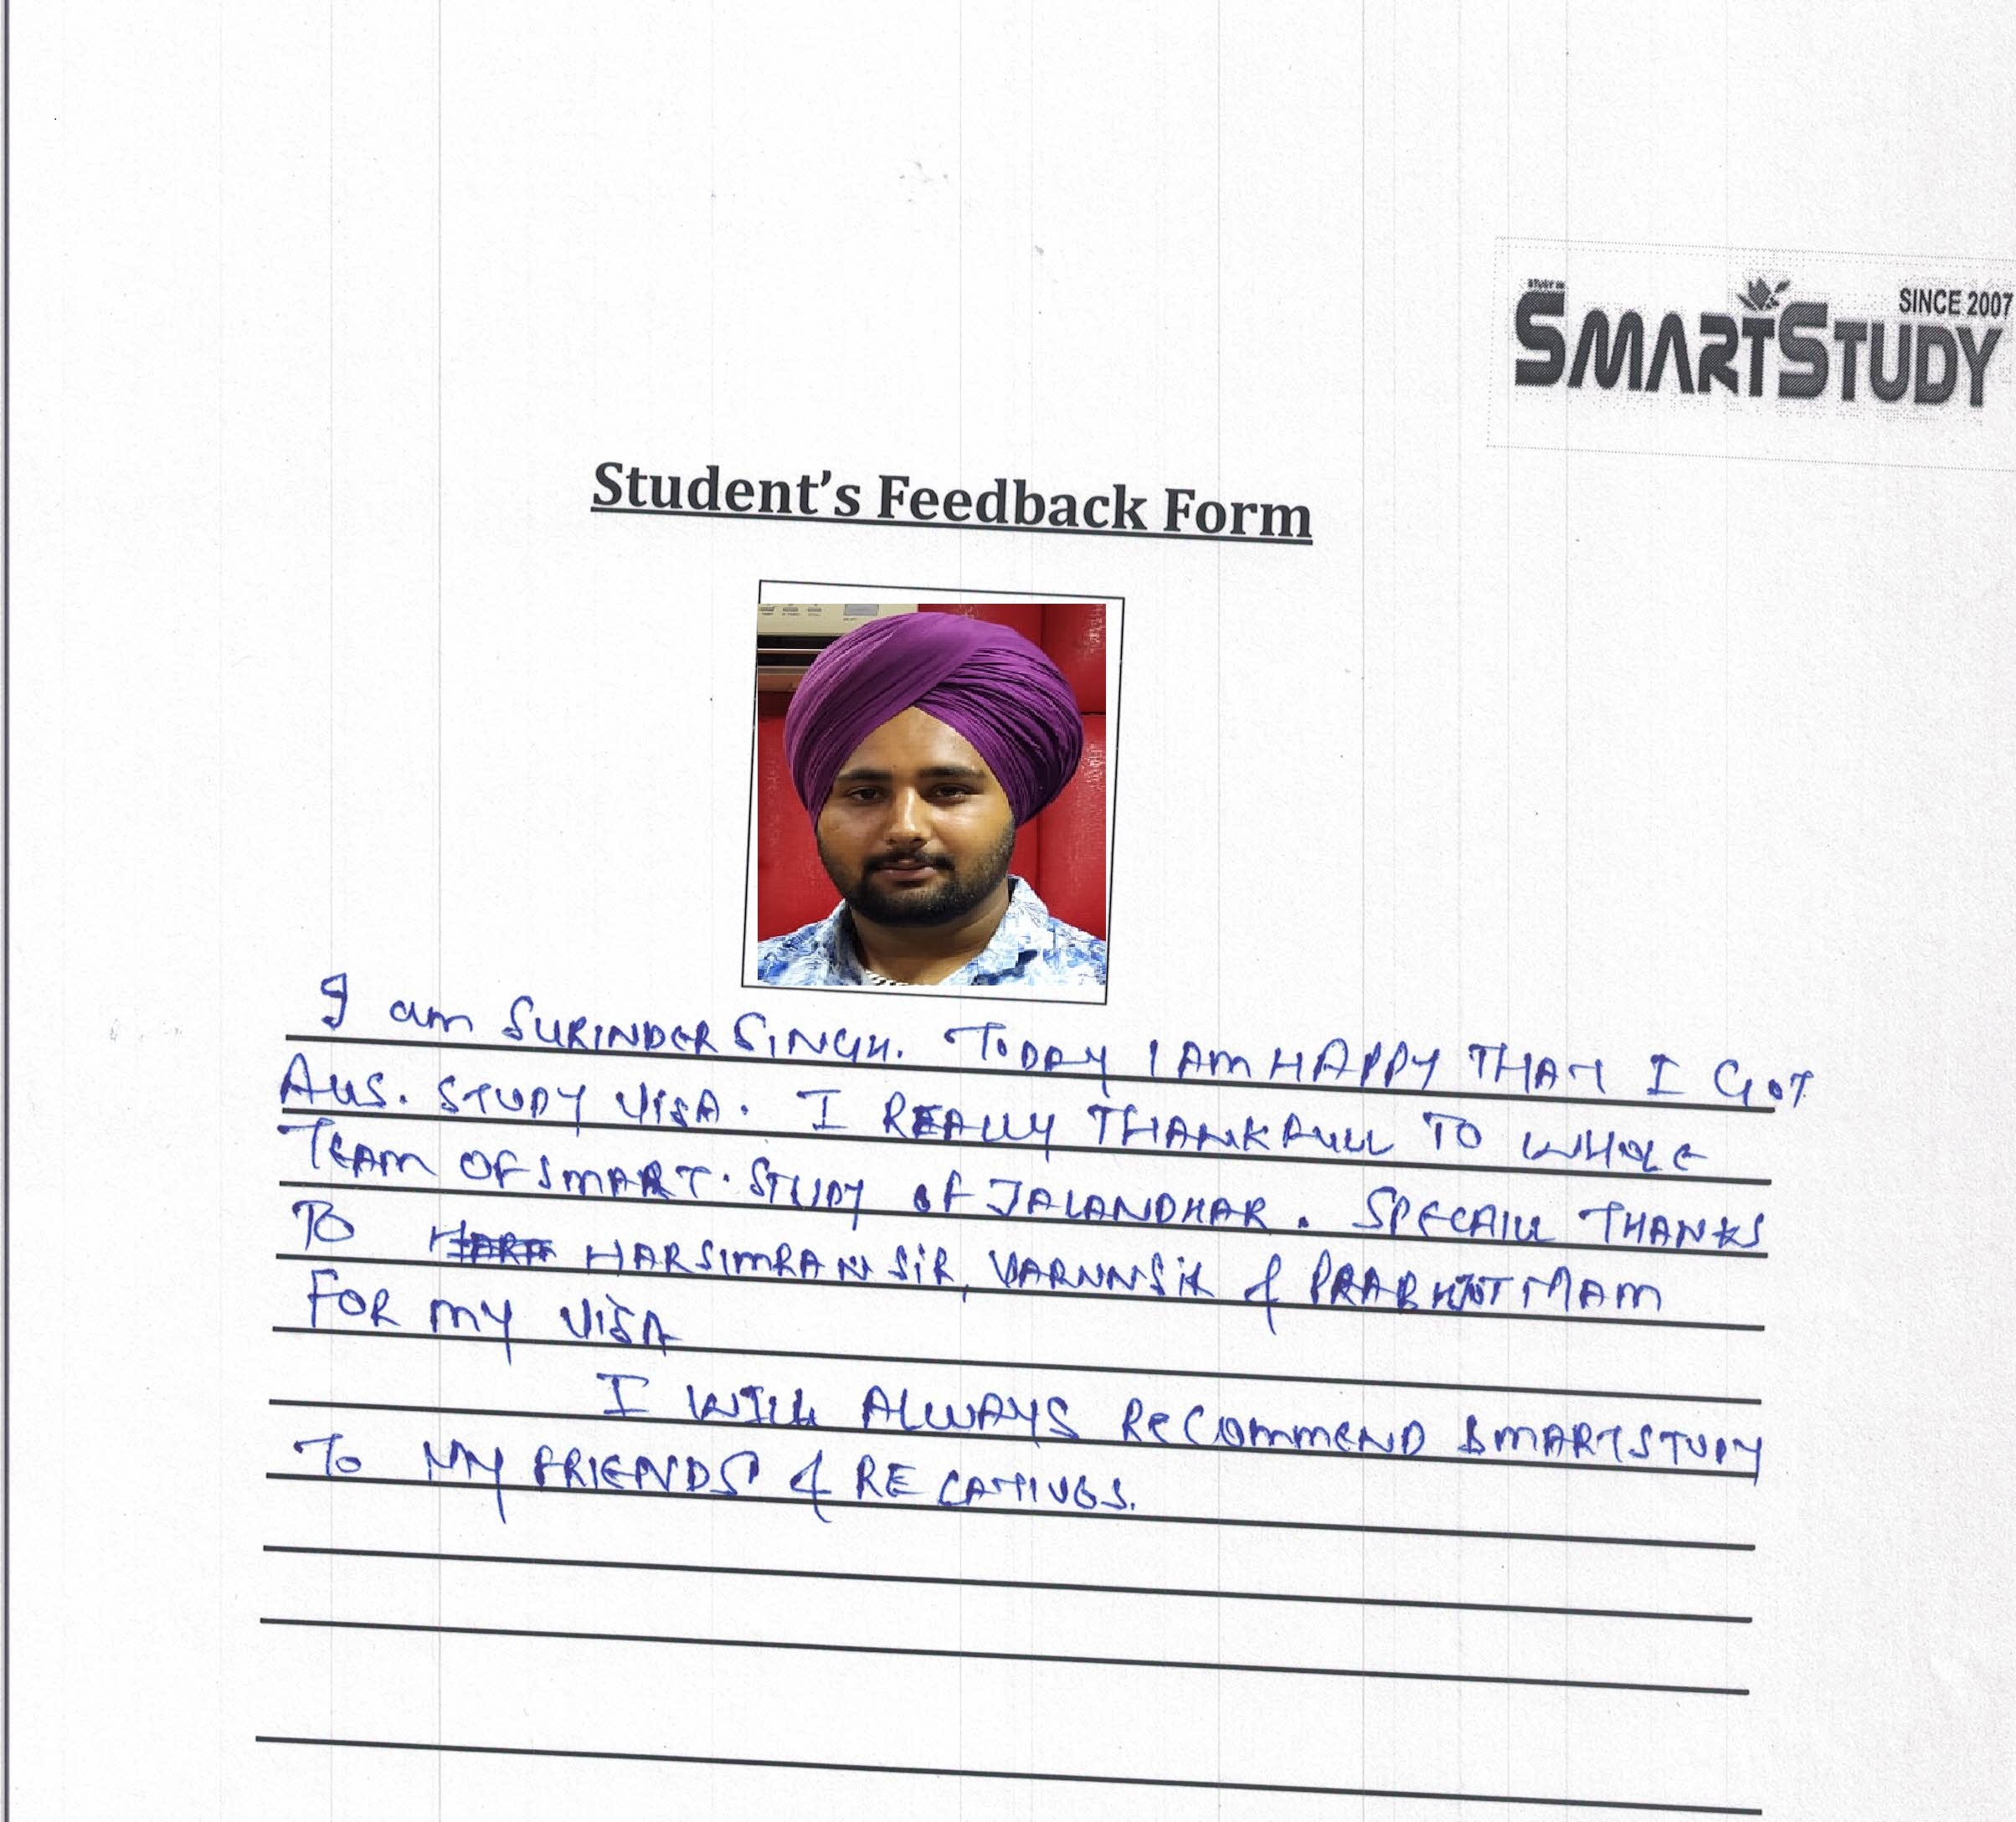 SINCE 2007
SMARTSTUDY
Student's Feedback Form
I am SURINDER SINGH. TODAY I AM HAPPY THAT I GOT
AUS. STUDY VISA. I REALLY THANKFULL TO WHOLE
TEAM OF SMART. STUDY of JALANDHAR. SPECAILL THANKS
TO HARSIMRAN SIR, VARUNSIR & MAM
FOR MY VISA
I WILL ALWAYS RECOMMEND SMARTSTUDY
To MY FRIENDS & RELATIVES.